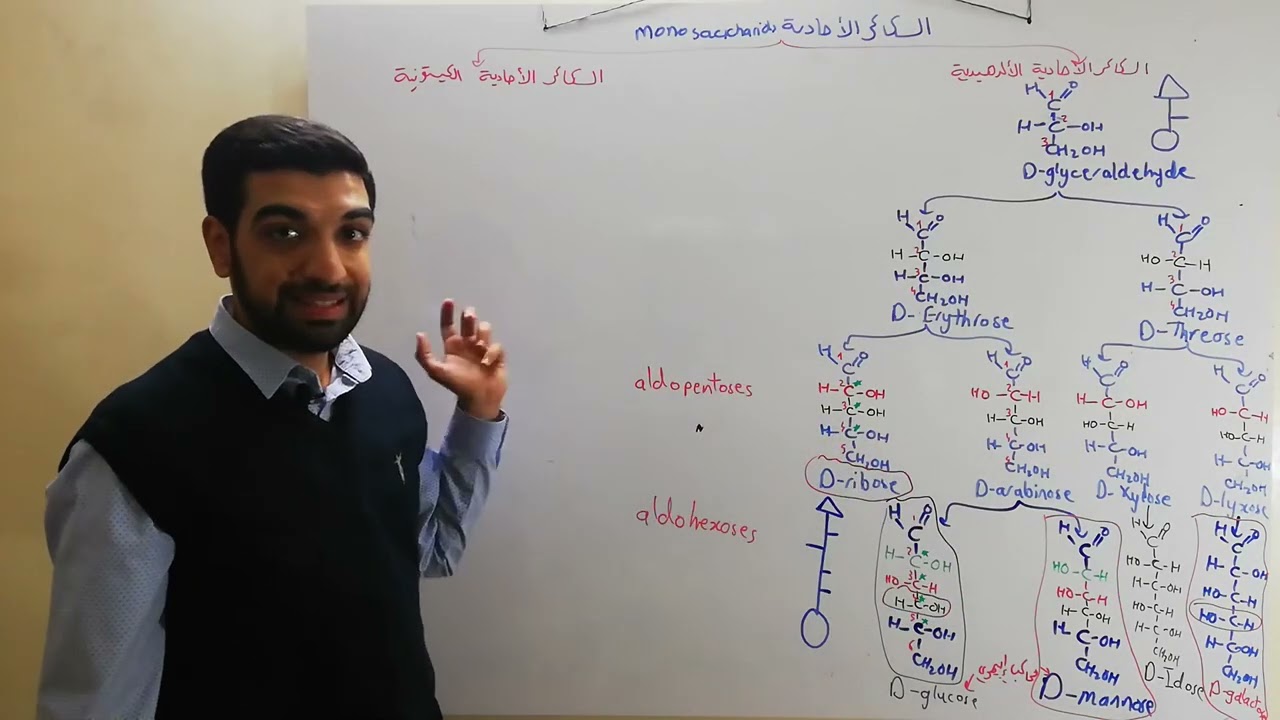 monosaccharids السكائر الأحادية
السكائر الأحادية الألدهيدية
السكائر الأحادية الكيتونية
H O
1 C
H-C-OH 2
3 CH2OH
D-glyceraldehyde
H O
1 C
H-2C-OH
H-3C-OH
4 CH2OH
D-Erythrose
H O
1 C
HO-2C-H
H-3C-OH
4 CH2OH
D-Threose
aldopentoses
H O
1 C
H-2C*-OH
H-3C*-OH
H-4C*-OH
5 CH2OH
D-ribose
H O
1 C
HO-2C-H
H-3C-OH
H-4C-OH
5 CH2OH
D-arabinose
H O
C
H-C-OH
HO-C-H
H-C-OH
CH2OH
D-Xylose
H O
C
HO-C-H
HO-C-H
H-C-OH
CH2OH
D-lyxose
aldohexoses
H O
1 C
H-2C*-OH
HO-3C*-H
H-4C*-OH
H-5C*-OH
6 CH2OH
D-glucose
H O
C
HO-C-H
HO-C-H
H-C-OH
H-C-OH
CH2OH
D-mannose
H O
C
HO-C-H
H-C-OH
HO-C-H
H-C-OH
CH2OH
D-Idose
H O
C
H-C-OH
HO-C-H
HO-C-H
H-C-OH
CH2OH